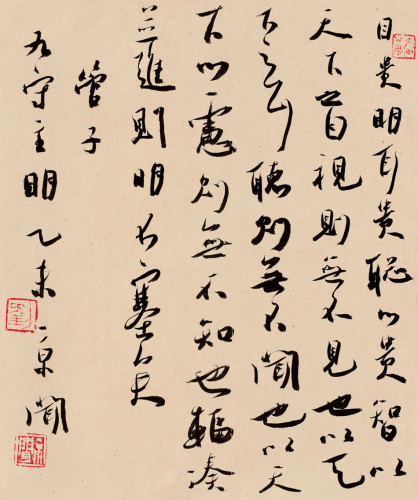 目貴明耳貴聰心貴智以
天下之目視則無不見也以天
下之耳聽則無不聞也以天
下之心慮則無不知也輻湊
並進則明不塞矣
管子
九守主明乙未京聞
劉